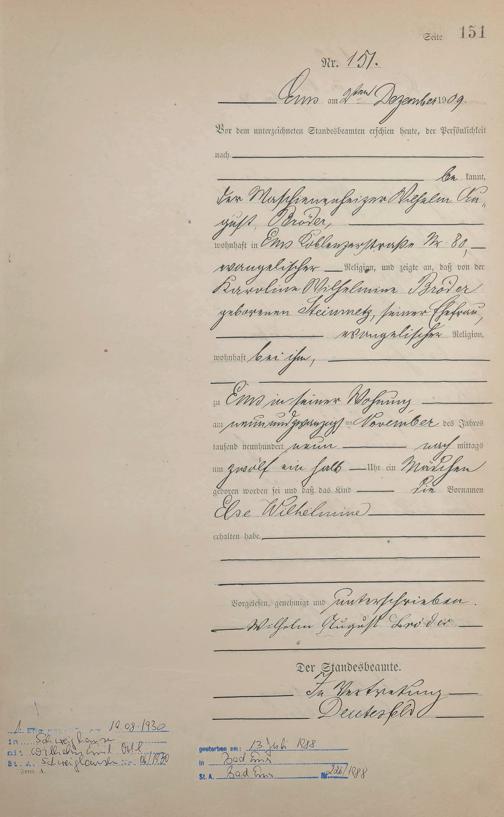 Seite 151
Nr. 151.
Ems am 2ten Dezember 1909.
Vor dem unterzeichneten Standesbeamten erschien heute, der Persönlichkeit
nach
be kannt,
der Maschienenheizer Wilhelm Au„
gust Bröder,
wohnhaft in Ems Koblenzerstraße Nr 80,
evangelischer Religion, und zeigte an, daß von der
Karoline Wilhelmine Bröder
geborenen Steinmetz, seiner Ehefrau,
evangelischer Religion,
wohnhaft bei ihm,
zu Ems in seiner Wohnung
am neunundzwanzigsten November des Jahres
tausend neunhundert neun nach mittags
um zwölf ein halb Uhr ein Mädchen
geboren worden sei und daß das Kind die Vornamen
Else Wilhelmine
erhalten habe.
Vorgelesen, genehmigt und unterschrieben.
Wilhelm August Bröder
Der Standesbeamte.
In Vertretung
19.08.1930
in
mit Wilhelm
St. A. Nr. 06/1930
gestorben am: 13. Juli 1988
in Bad Ems
St. A. Bad Ems Nr. 226/1988